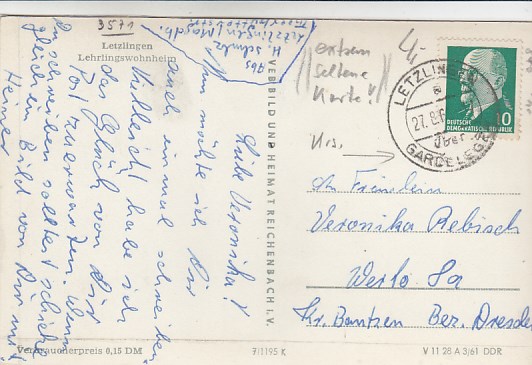 3571
Letzlingen
Lehrlingswohnheim
Abs
H. Schulz
Letzlingen/Magdb.
Liebe Veronika!
Nun möchte ich Dir
auch einmal schreiben.
Vielleicht habe ich
das Glück von Dir
Post zu erwarten. Wenn
Du schreiben solltest schicke
gleich ein Bild von Dir mit
Heiner
Verbraucherpreis 0,15 DM
VEB BILD UND HEIMAT REICHENBACH I. V.
7/1195 K
extrem
seltene
Karte!!
4,-
LETZLINGEN
a
27.8.6
über
GARDELEGEN
10
DEUTSCHE
DEMOKRATISCHE REPUBLIK
An Fräulein
Veronika Rebisch
Kr. Bautzen Bez. Dresden
V 11 28 A 3/61 DDR